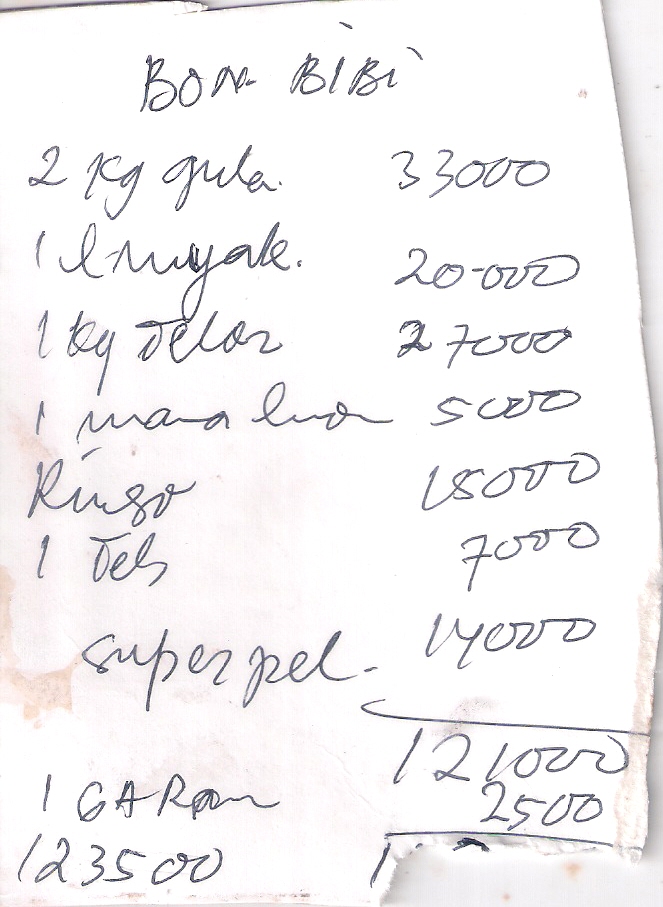 BON BIBI
2 Kg gula. 33000
1 l minyak. 20.000
1 kg Telor 27000
1 mama lemon 5000
Rinso 15000
1 Teh 7000
superpel. 14000
121000
1 GARam 2500
123500